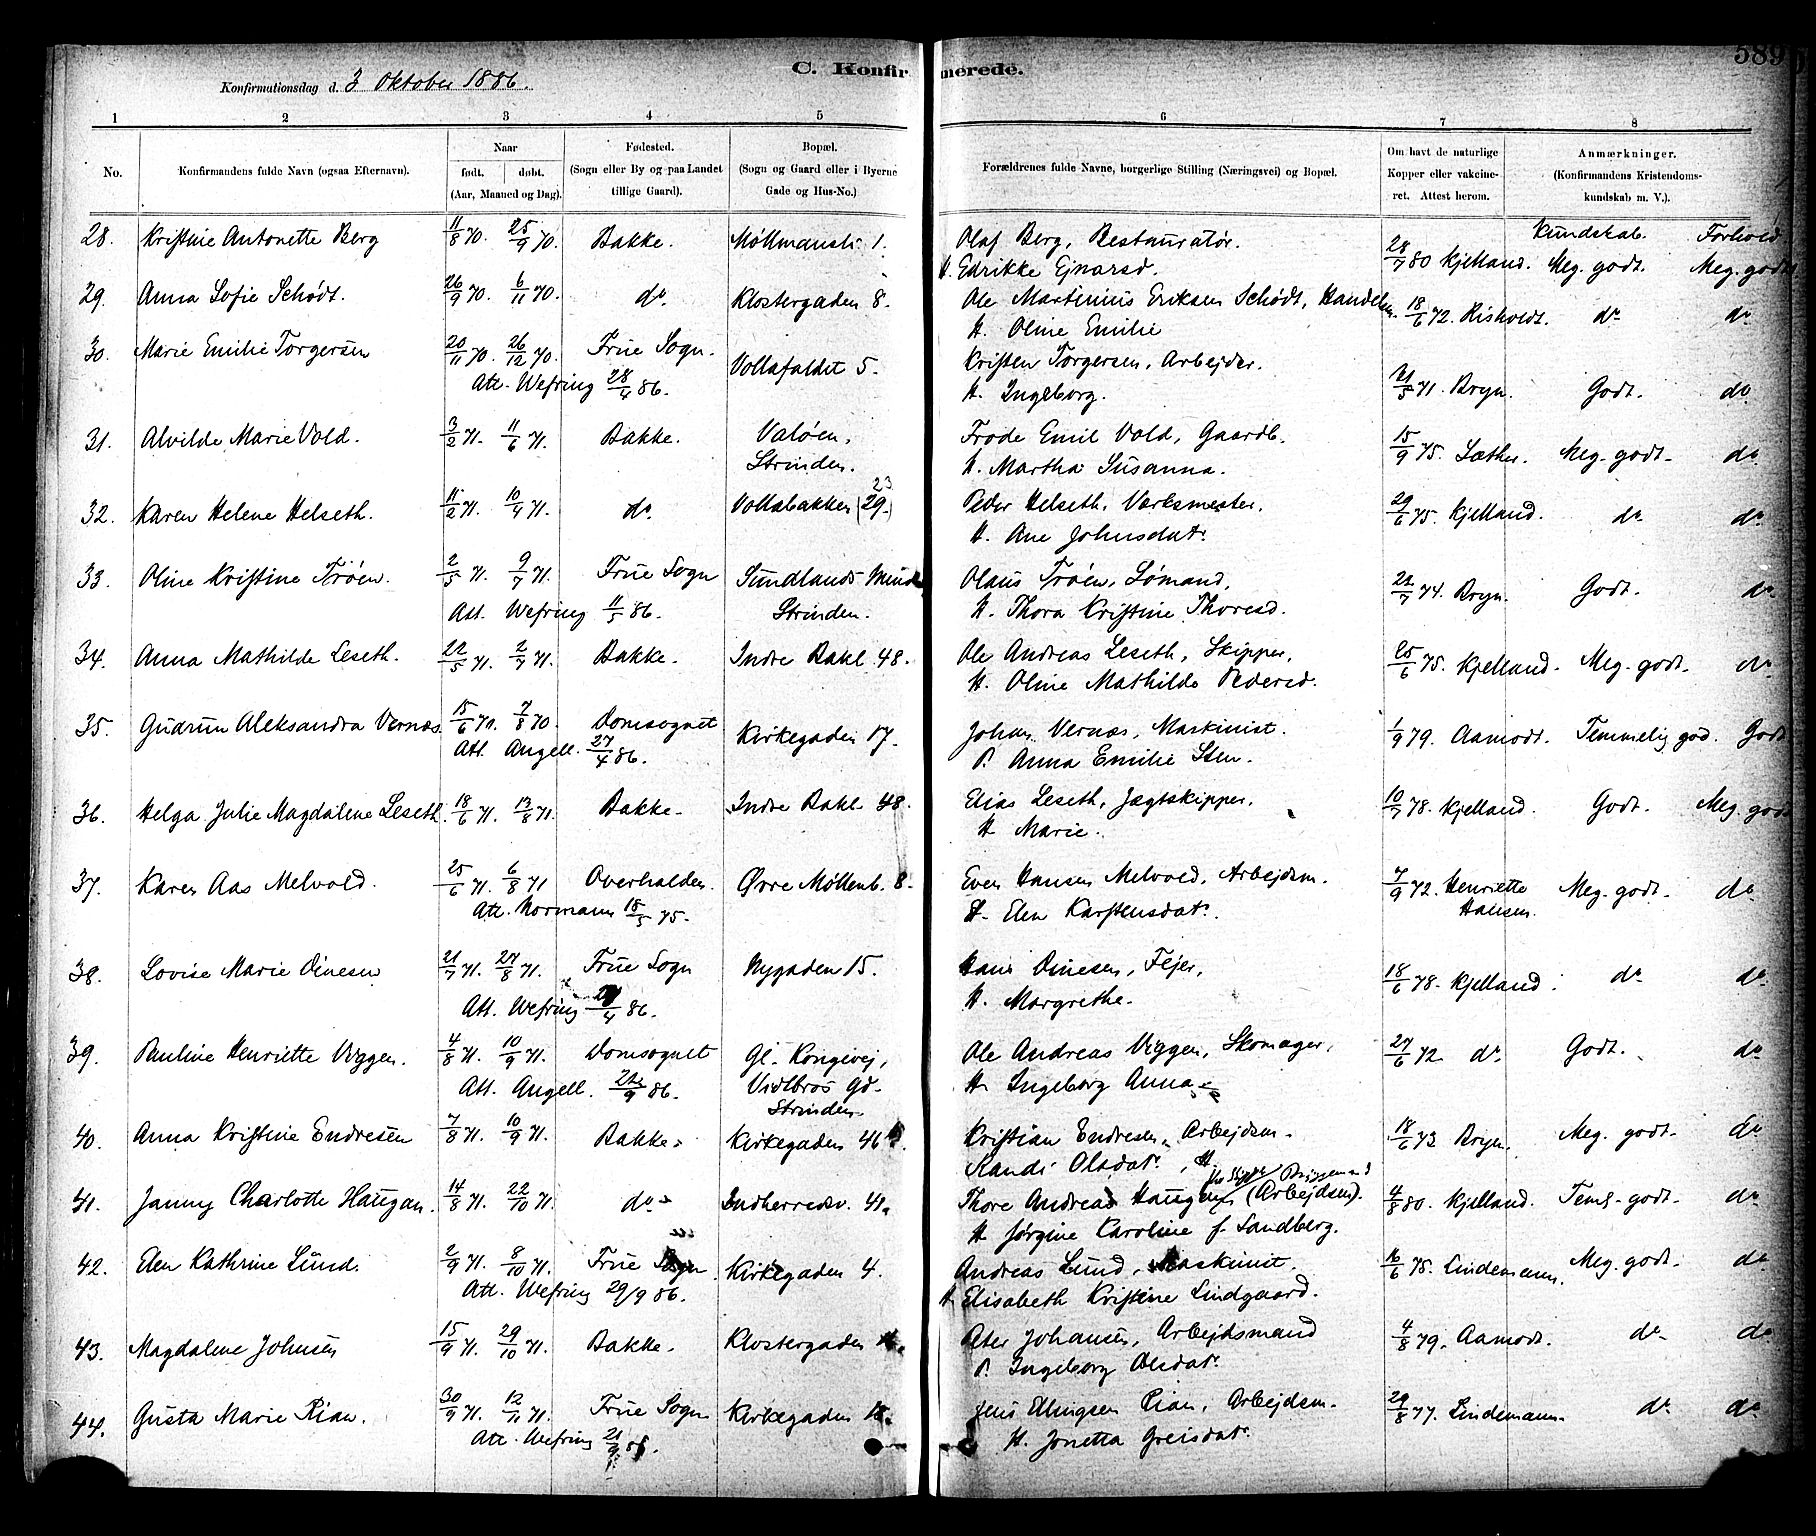 C. Konfirmerede.
589
Konfirmationsdag d. 3 Oktober 1886.
1 2 3 4 5 6 7 8
No. Konfirmandens fulde Navn (ogsaa Efternavn). Naar født. døbt. (Aar, Maaned og Dag). Fødested. (Sogn eller By og paa Landet tillige Gaard). Bopæl. (Sogn og Gaard eller i Byerne Gade og Hus-No.) Forældrenes fulde Navne, borgerlige Stilling (Næringsvei) og Bopæl. Om havt de naturlige Kopper eller vakcineret. Attest herom. Anmærkninger. (Konfirmandens Kristendomskundskab m. V.).
Kundskab. Forhold
28. Kristine Antonette Berg 11/8 70. 25/9 70. Bakke. Møllmanusli 1. Olaf Berg, Restauratør. 28/7 80 Kjelland. Meg. godt. Meg. godt
H. Edrikke Ejnarsd.
29. Anna Sofie Schødt. 26/9 70. 6/11 70. do. Klostergaden 8. Ole Martinius Eriksen Schødt, Handelsm. 18/6 72. Risholdt. do do
H. Oline Emilie
30. Marie Emilie Torgersen 20/11 70. 26/12 70. Frue Sogn. Vollafaldet 5. Kristen Torgersen, Arbejder. 21/5 71. Bryn. Godt. do
Att. Wefring 28/4 86. H. Ingeborg.
31. Alvilde Marie Vold. 3/2 71. 11/6 71. Bakke. Valøen, Frode Emil Vold, Gaardb. 15/9 75. Sæther. Meg. godt. do
Strinden. H. Martha Susanna.
32. Karen Helene Helseth. 11/2 71. 10/4 71. do. Vollabakken (29.) 23 Peder Helseth, Værksmester. 29/6 75. Kjelland. do do
H. Ane Johnsdat.
33. Oline Kristine Trøen. 2/5 71. 9/7 71. Frue Sogn Sundlands Minde Olaus Trøen, Sømand, 22/7 74. Bryn. Godt. do
Att. Wefring 11/5 86. Strinden. H. Thora Kristine Thoresd.
34. Anna Mathilde Leseth. 22/5 71. 2/7 71. Bakke. Indre Bakl. 48. Ole Andreas Leseth, Skipper, 25/6 75. Kjelland. Meg. godt. do
H. Oline Mathilde Pedersd.
35. Gudrun Aleksandra Vernæs. 15/6 70. 7/8 70. Domsognet Kirkegaden 17. Johan Vernæs, Maskinist. 1/9 79. Aamodt. Temmelig god. Godt
Att. Angell. 27/4 86. P. Anna Emilie Sten.
36. Helga Julie Magdalene Leseth. 18/6 71. 13/8 71. Bakke. Indre Bakl. 48. Elias Leseth, Jægtskipper. 10/7 78. Kjelland. Godt. Meg. godt
H. Marie.
37. Karen Aas Melvold. 25/6 71. 6/8 71 Overhalden. Øvre Møllenb. 8. Even Hansen Melvold, Arbejdsm. 7/9 72. Henriette Hansen. Meg. godt. do
Att. Normann 18/5 75. H. Elen Karstensdat.
38. Lovise Marie Dinesen 21/7 71. 27/8 71. Frue Sogn Nygaden 15. Hans Dinesen, Fejer, 18/6 78. Kjelland. do do
Att. Wefring /4 86. H. Margrethe.
39. Pauline Henriette Viggen. 4/8 71. 10/9 71. Domsognet Gl. Kongivej, Ole Andreas Viggen, Skomager, 27/6 72 do. Godt. do
Att. Angell. 22/9 86. Vidtbros Gd. H. Ingeborg Anna
Strinden.
40. Anna Kristine Endresen 7/8 71. 10/9 71. Bakke. Kirkegaden 46 Kristian Endresen, Arbejdsm. 18/6 73 Bryn. Meg. godt. do
Randi Olsdat. H.
41. Janny Charlotte Haugan. 14/8 71. 22/10 71. do. Indherredsv. 41. Thore Andreas Haugen (Arbejdsm). 4/8 80. Kjelland. Teml. godt. do
H Jørgine Karoline f. Sandberg.
42. Elen Kathrine Lund. 2/9 71. 8/10 71. Frue Sogn Kirkegaden 4. Andreas Lund, Maskinist. 16/6 75. Lindemann. Meg. godt. do
Att. Wefring 29/9 86. H Elisabeth Kristine Lindgaard.
43. Magdalene Johnsen 15/9 71. 29/10 71. Bakke. Klostergaden Peter Johansen, Arbejdsmand 4/8 79. Aamodt. do. do
P. Ingeborg Olsdat.
44. Gusta Marie Rian. 30/9 71. 12/11 71. Frue Sogn Kirkegaden 18. Jens Ellingsen Rian, Arbejdsm. 29/8 77. Lindemann. do do
Att. Wefring 21/9 86. H. Jonetta Greisdat.